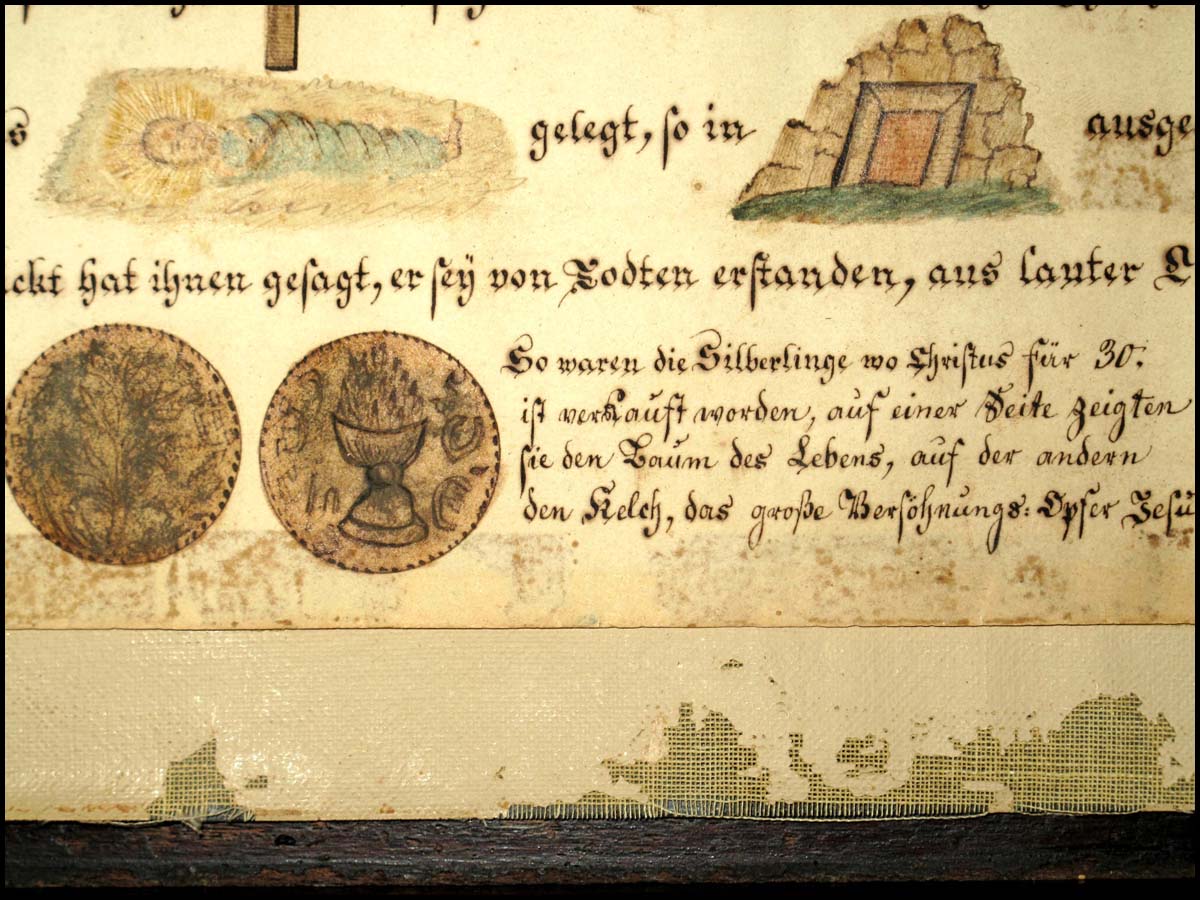 s gelegt, so in ausge
ckt hat ihnen gesagt, er seÿ von Todten erstanden, aus lauter
So waren die Silberlinge wo Christus für 30.
ist verkauft worden, auf einer Seite zeigten
sie den Baum des Lebens, auf der andern
den Kelch, das große Versöhnungs: Opfer Jesu